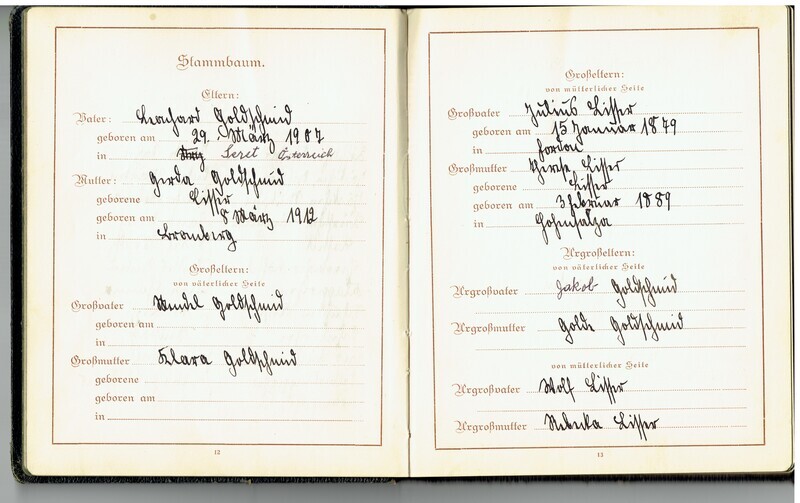 Stammbaum.
Eltern:
Vater: Leonhard Goldschmid
geboren am 29. März 1907
in Seret Österreich
Mutter: Gerda Goldschmid
geborene Lisser
geboren am 8 März 1912
in Bromberg
Großeltern:
von väterlicher Seite
Großvater Mendel Goldschmid
geboren am
in
Großmutter Klara Goldschmid
geborene
geboren am
in
12
Großeltern:
von mütterlicher Seite
Großvater Julius Lisser
geboren am 15 Januar 1879
in Fordon
Großmutter Lisser
geborene Lisser
geboren am 3 Februar 1889
in Hohensalza
Urgroßeltern:
von väterlicher Seite
Urgroßvater Jakob Goldschmid
Urgroßmutter Golde Goldschmid
von mütterlicher Seite
Urgroßvater Wolf Lisser
Urgroßmutter Rebecka Lisser
13